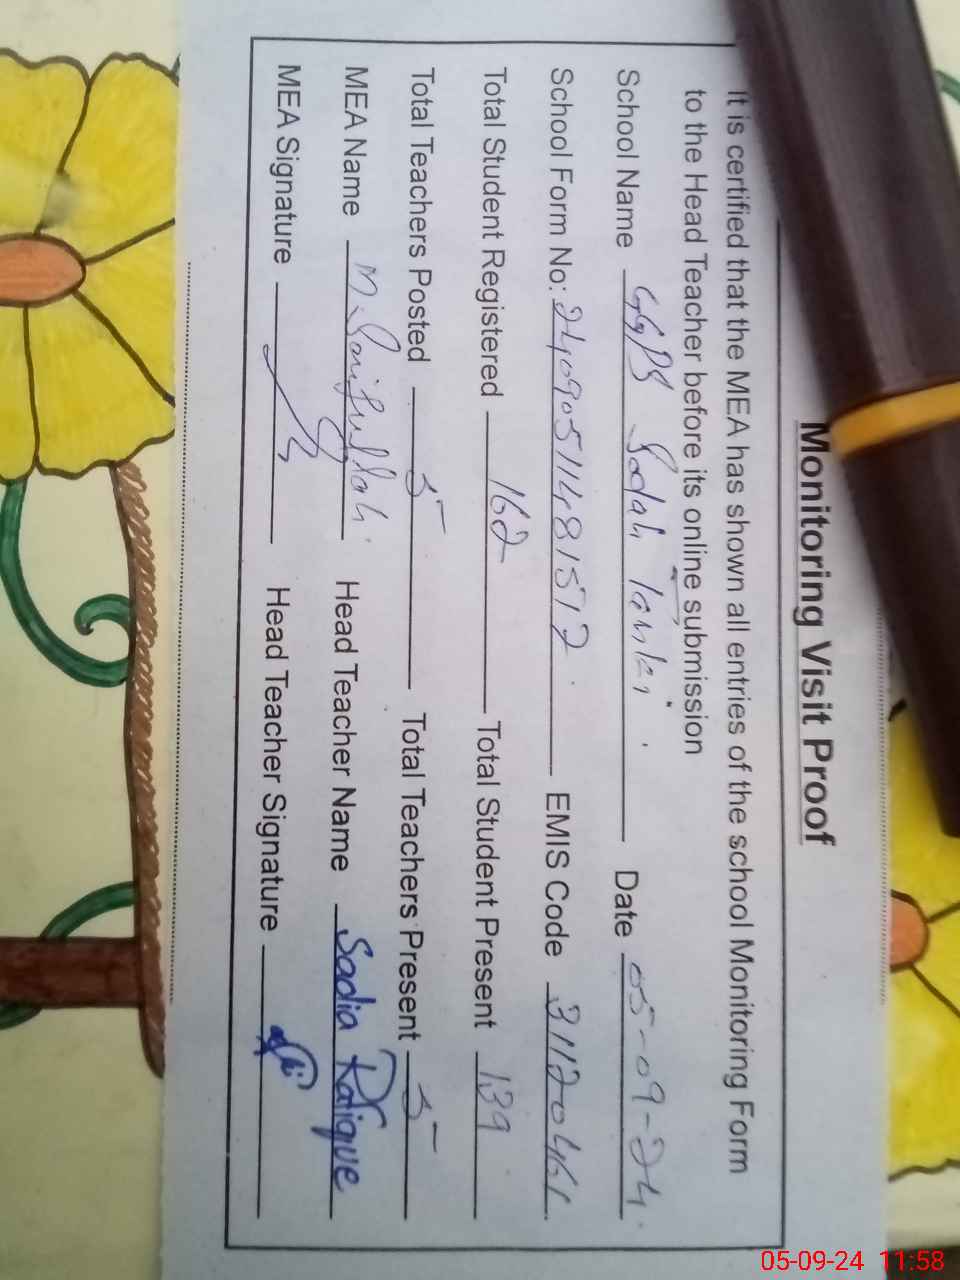 Monitoring Visit Proof
It is certified that the MEA has shown all entries of the school Monitoring Form
to the Head Teacher before its online submission
School Name GGPS Sadah Tanki. Date 05-09-24.
School Form No: 24090511481512 EMIS Code 31120461.
Total Student Registered 162 Total Student Present 139
Total Teachers Posted 5 Total Teachers Present 5
MEA Name M. Head Teacher Name Sadia Rafique
MEA Signature Head Teacher Signature
05-09-24 11:58